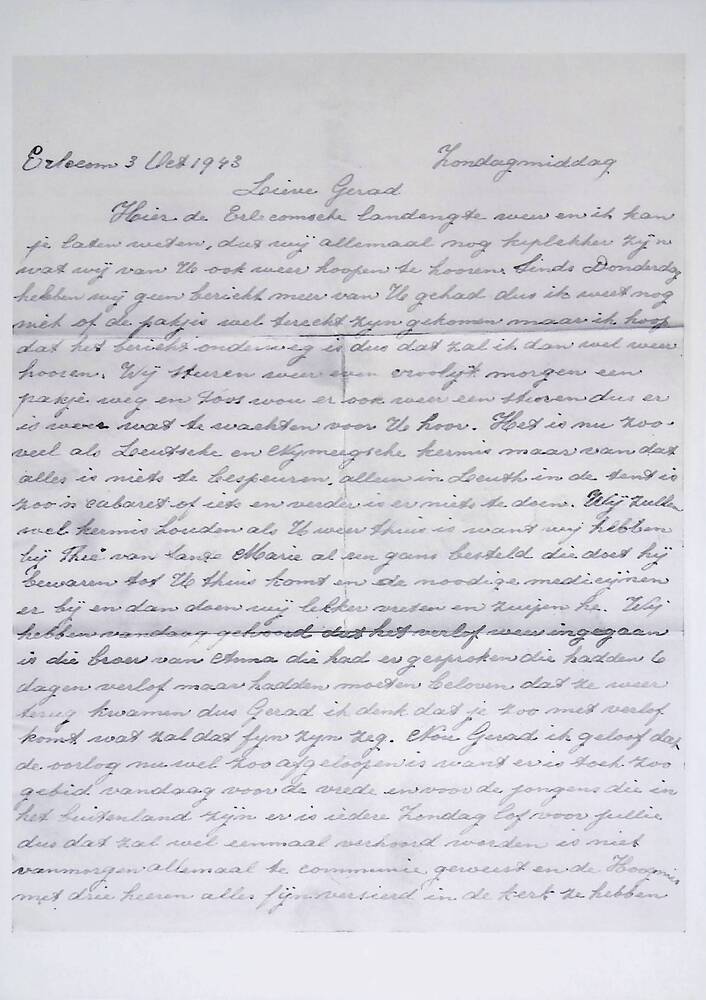 Erlecom 3 Oct 1943 Zondagmiddag
Lieve Gerad
Hier de Erlecomsche landengte weer en ik kan
je laten weten, dat wij allemaal nog kiplekker zijn
wat wij van U ook weer hoopen te hooren. Sinds Donderdag
hebben wij geen bericht meer van U gehad dus ik weet nog
niet of de pakjes wel terecht zijn gekomen maar ik hoop
dat het bericht onderweg is dus dat zal ik dan wel weer
hooren. Wij sturen weer even vroolijk morgen een
pakje weg en Toos wou er ook weer een sturen dus er
is weer wat te wachten voor U hoor. Het is nu zoo
veel als Leutsche en Nijmeegsche kermis maar van dat
alles is niets te bespeuren, alleen in Leuth in de tent is
zoo'n cabaret of iets en verder is er niets te doen. Wij zullen
wel kermis houden als U weer thuis is want wij hebben
bij Thé van lange Marie al een gans besteld die doet hij
bewaren tot U thuis komt en de noodige medicijnen
er bij en dan doen wij lekker vreten en zuipen he. Wij
hebben vandaag gehoord dat het verlof weer ingegaan
is die broer van Anna die had er gesproken die hadden 6
dagen verlof maar hadden moeten beloven dat ze weer
terug kwamen dus Gerad ik denk dat je zoo met verlof
komt wat zal dat fijn zijn zeg. Nou Gerad ik geloof dat
de oorlog nu wel zoo afgeloopen is want er is toch zoo
gebid vandaag voor de vrede en voor de jongens die in
het buitenland zijn er is iedere Zondag lof voor jullie
dus dat zal wel eenmaal verhoord worden is niet
vanmorgen allemaal te communie geweest en de Hoogmis
met drie heeren alles fijn versierd in de kerk ze hebben